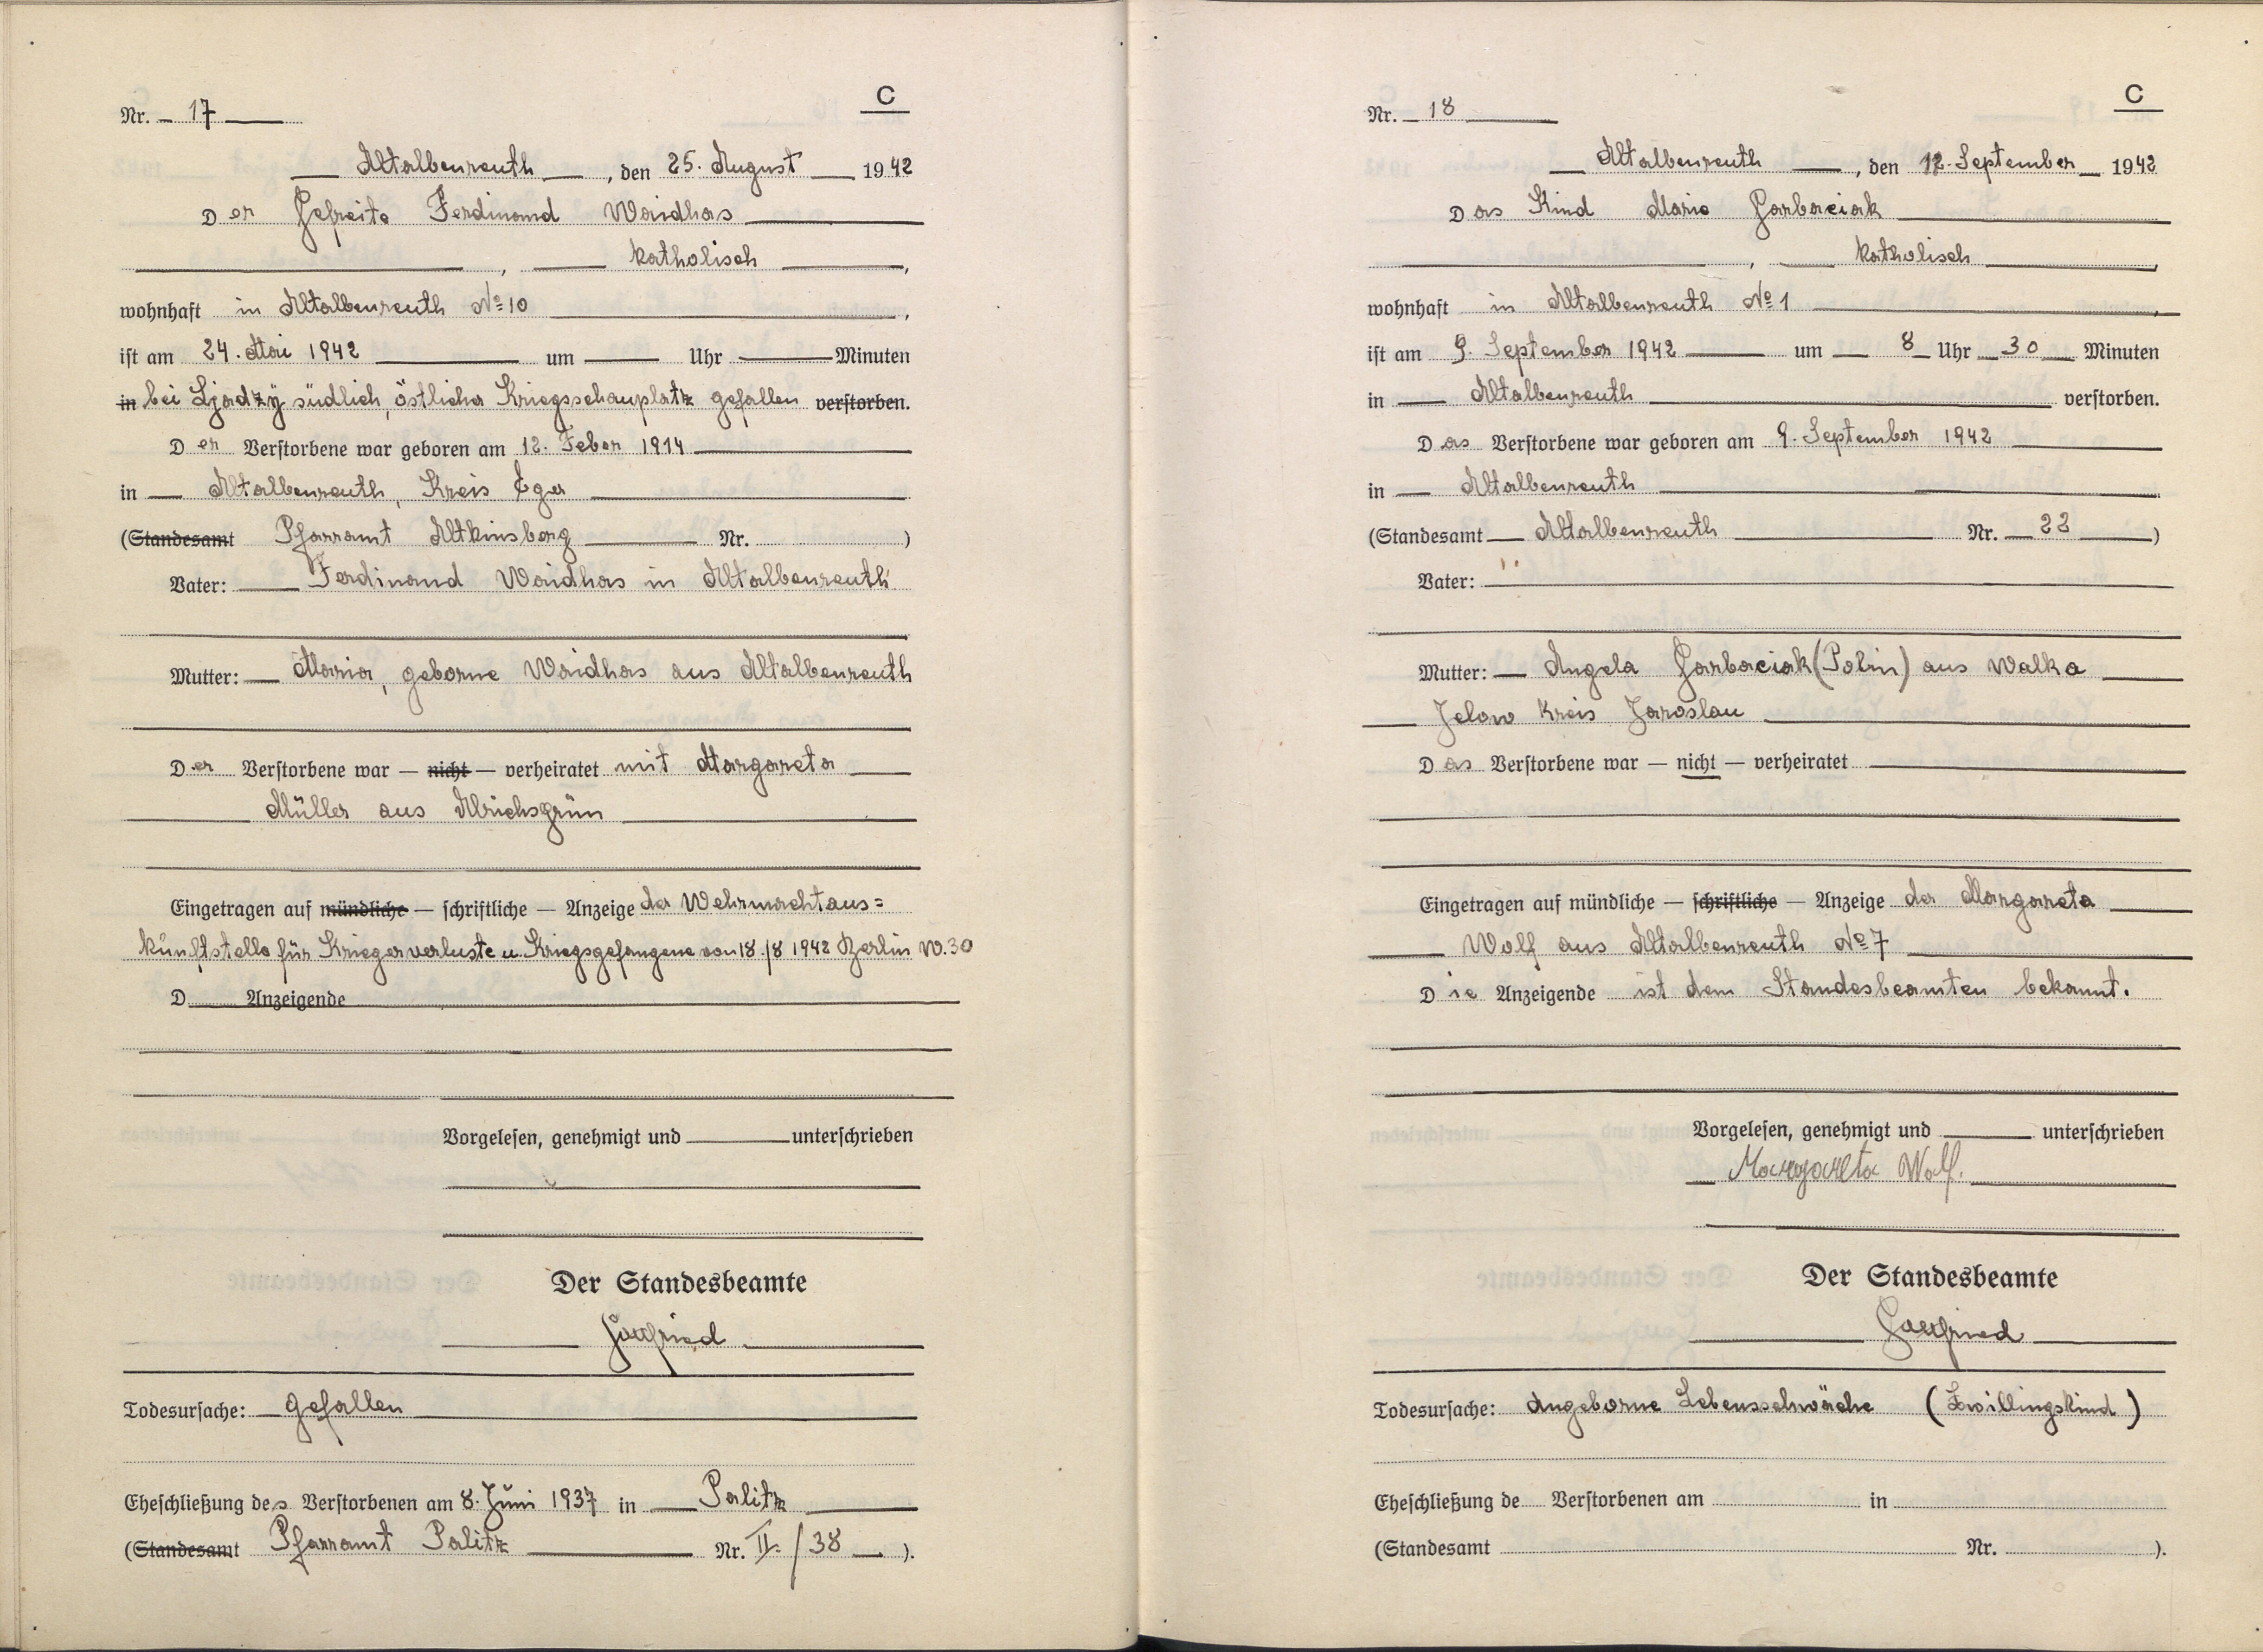 C
Nr. 17
Altalbenreuth, den 25. August 1942
Der Gefreite Ferdinand Waidhas
, katholisch,
wohnhaft in Altalbenreuth No 10,
ist am 24. Mai 1942 um Uhr Minuten
in bei Ljadzÿ südlich, östlicher Kriegsschauplatz gefallen verstorben.
Der Verstorbene war geboren am 12. Feber 1914
in Altalbenreuth, Kreis Eger
(Standesamt Pfarramt Altkinsberg Nr. )
Vater: Ferdinand Waidhas in Altalbenreuth
Mutter: Maria, geborne Waidhas aus Altalbenreuth
Der Verstorbene war — nicht — verheiratet mit Margareta
Müller aus Ulrichsgrün
Eingetragen auf mündliche — schriftliche — Anzeige der Wehrmachtaus=
kunftstelle für Kriegerverluste u. Kriegsgefangene von 18./8 1942 Berlin W.30
D Anzeigende
Vorgelesen, genehmigt und unterschrieben
Der Standesbeamte
Todesursache: gefallen
Eheschließung des Verstorbenen am 8. Juni 1937 in Palitz
(Standesamt Pfarramt Palitz Nr. II./38 ).
C
Nr. 18
Altalbenreuth, den 12. September 1942
Das Kind Marie Garbaciak
, katholisch,
wohnhaft in Altalbenreuth No 1,
ist am 9. September 1942 um 8 Uhr 30 Minuten
in Altalbenreuth verstorben.
Das Verstorbene war geboren am 9. September 1942
in Altalbenreuth
(Standesamt Altalbenreuth Nr. 22 )
Vater:
Mutter: Angela Garbaciak (Polin) aus Walka
Jelow Kreis Jaroslau
Das Verstorbene war — nicht — verheiratet
Eingetragen auf mündliche — schriftliche — Anzeige der Margareta
Wolf aus Altalbenreuth No 7
Die Anzeigende ist dem Standesbeamten bekannt.
Vorgelesen, genehmigt und unterschrieben
Margareta Wolf.
Der Standesbeamte
Todesursache: Angeborne Lebensschwäche (Zwillingskind)
Eheschließung de Verstorbenen am in
(Standesamt Nr. ).